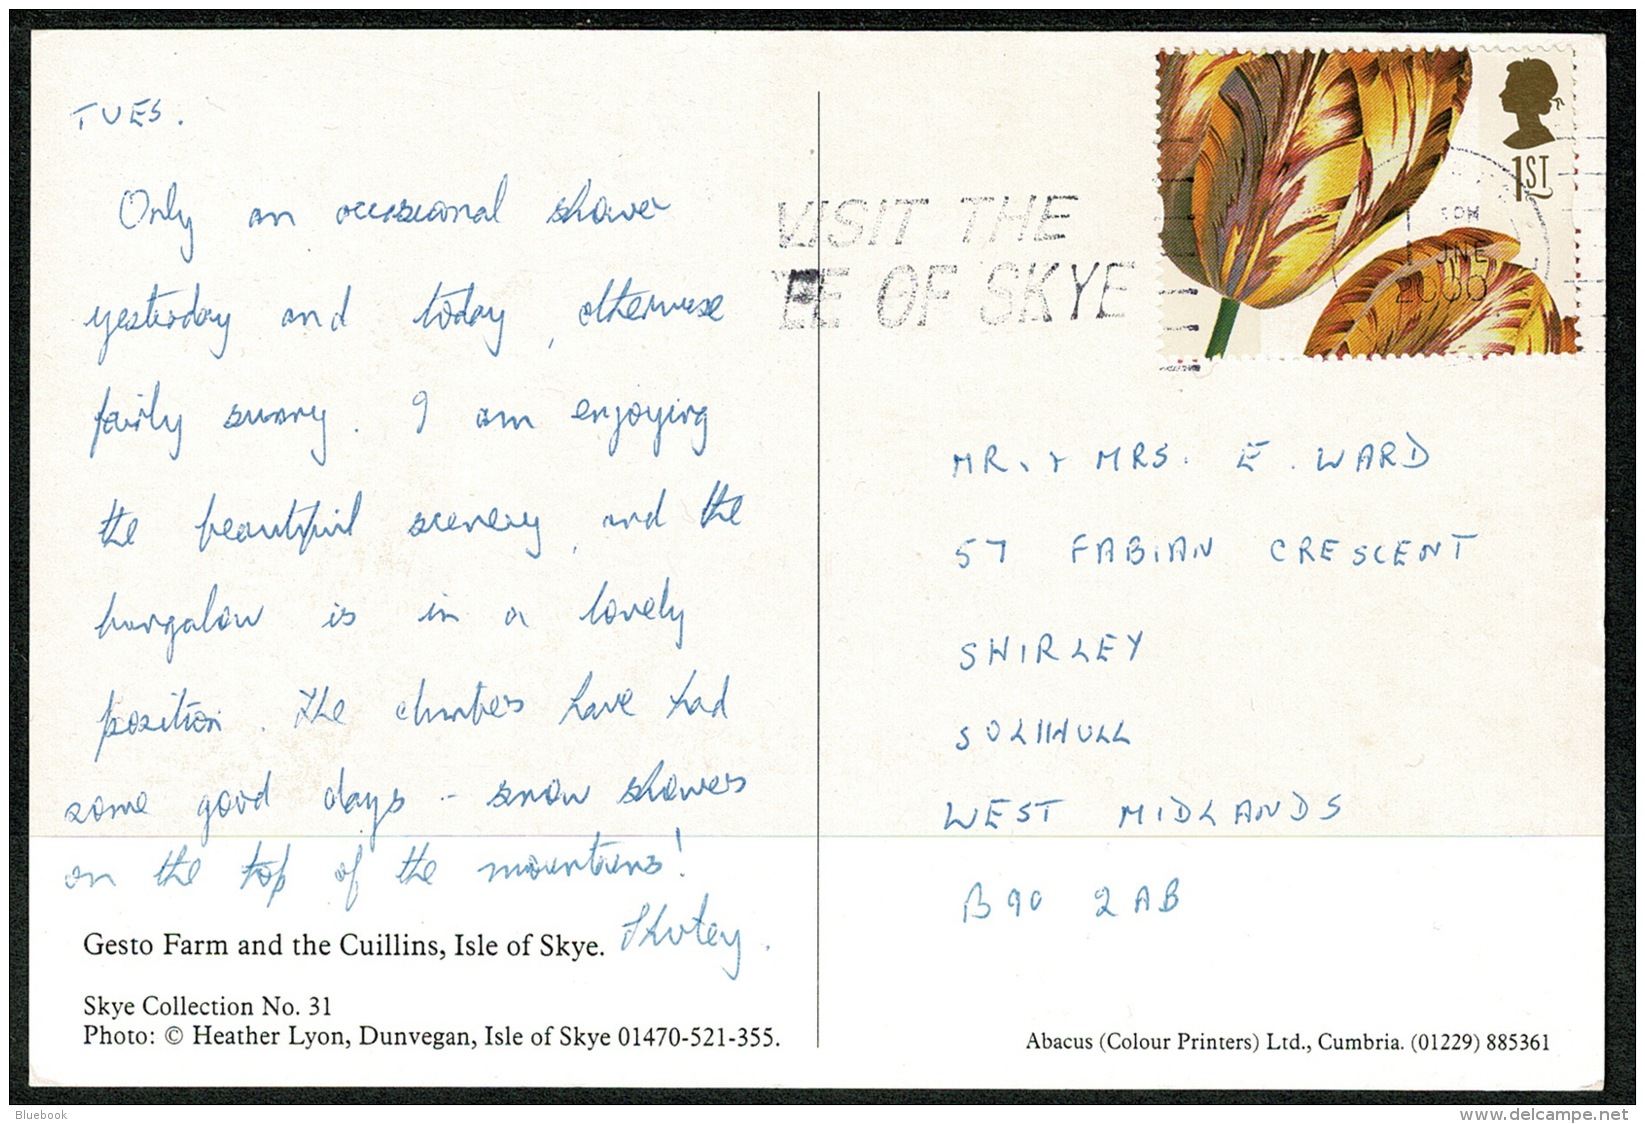 TUES.
Only an occasional shower
yesterday and today, otherwise
fairly sunny. I am enjoying
the beautiful scenery, and the
bungalow is in a lovely
position. The climbers have had
some good days - snow showers
on the top of the mountains!
Gesto Farm and the Cuillins, Isle of Skye.
Skye Collection No. 31
Photo: © Heather Lyon, Dunvegan, Isle of Skye 01470-521-355.
VISIT THE
OF SKYE
1ST
JNE
2000
MR. & MRS. E. WARD
57 FABIAN CRESCENT
SHIRLEY
SOLIHULL
WEST MIDLANDS
B90 2AB
Abacus (Colour Printers) Ltd., Cumbria. (01229) 885361
Bluebook
www.delcampe.net